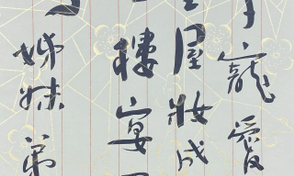 寵愛
屋妝成
樓宴
姊妹弟